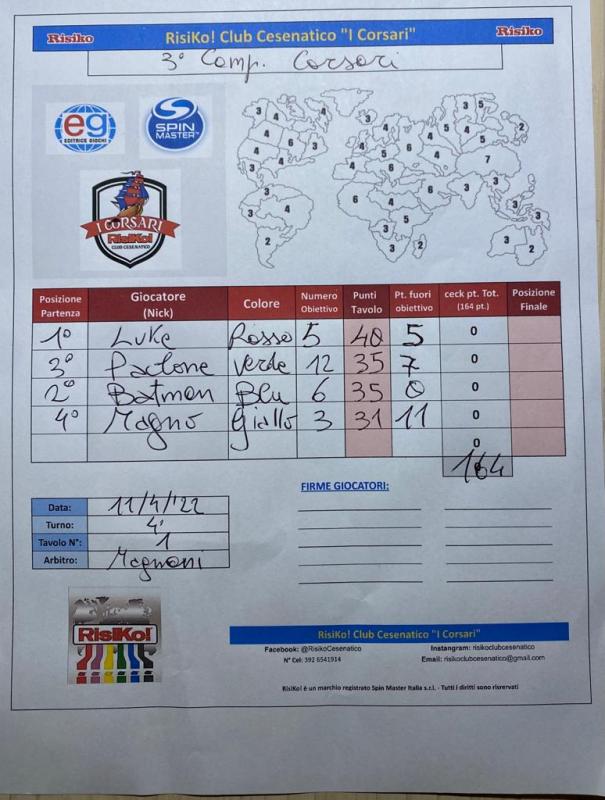 Risiko RisiKo! Club Cesenatico "I Corsari" Risiko
3° Comp. Corsari
eg
EDITRICE GIOCHI
SPIN MASTER™
I CORSARI
RisiKo!
CLUB CESENATICO
3 4 4 4 6 3 4 4 3 3 4 2
3 4 5 4 6 4 6 4 5 3 5 4 5 2 7 6 3 3 3 3 2 3 2
6 4 4 5 3 2
Posizione Partenza Giocatore (Nick) Colore Numero Obiettivo Punti Tavolo Pt. fuori obiettivo ceck pt. Tot. (164 pt.) Posizione Finale
1° Luke Rosso 5 40 5 0
3° Paclone Verde 12 35 7 0
2° Batman Blu 6 35 0 0
4° Magno Giallo 3 31 11 0
0
164
FIRME GIOCATORI:
Data: 11/4/'22
Turno: 4°
Tavolo N°: 1
Arbitro: Magnani
RisiKo!
RisiKo! Club Cesenatico "I Corsari"
Facebook: @RisikoCesenatico Instangram: risikoclubcesenatico
N° Cel: 392 6541914 Email: risikoclubcesenatico@gmail.com
RisiKo! è un marchio registrato Spin Master Italia s.r.l. - Tutti i diritti sono risrervati